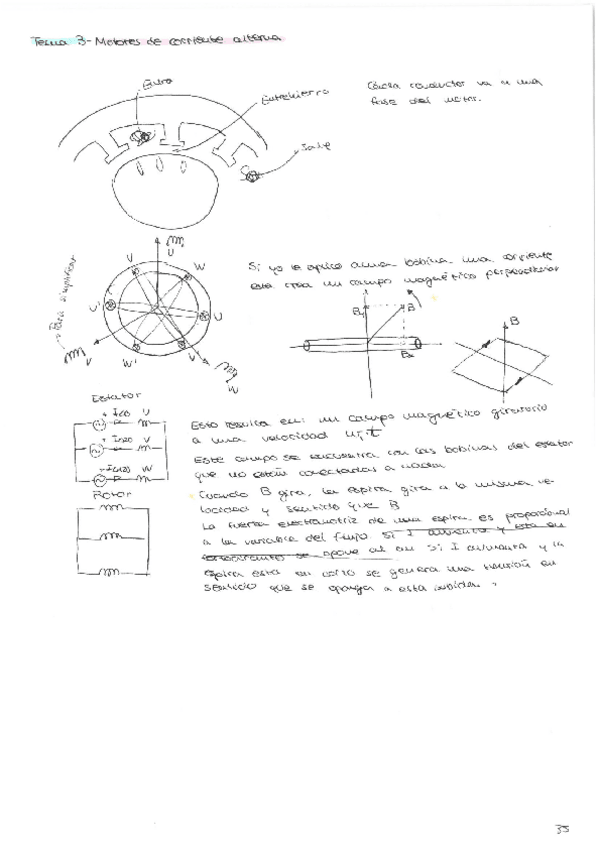 Tema 3- Motores de corriente alterna
Entra
Entrehierro
Sale
Cada conductor va a una
fase del motor.
Para simplificar
U
V
W
U'
U
V
W'
V
V
W
Si yo le aplico a una bobina una corriente
esta crea un campo magnético perpendicular
By
B
Bx
B
Estator
+ I∠0 U
+ I∠120 V
+ I∠120 W
Rotor
Esto resulta en: un campo magnético giratorio
a una velocidad
Este campo se encuentra con las bobinas del estator
que no están conectadas a nada
Cuando B gira, la espira gira a la misma ve-
locidad y sentido que B
La fuerza electromotriz de una espira es proporcional
a la variable del flujo. Si I aumenta y esta en
se opone al au Si I aumenta y la
espira esta en corto se genera una tensión en
sentido que se oponga a esta subida.
35